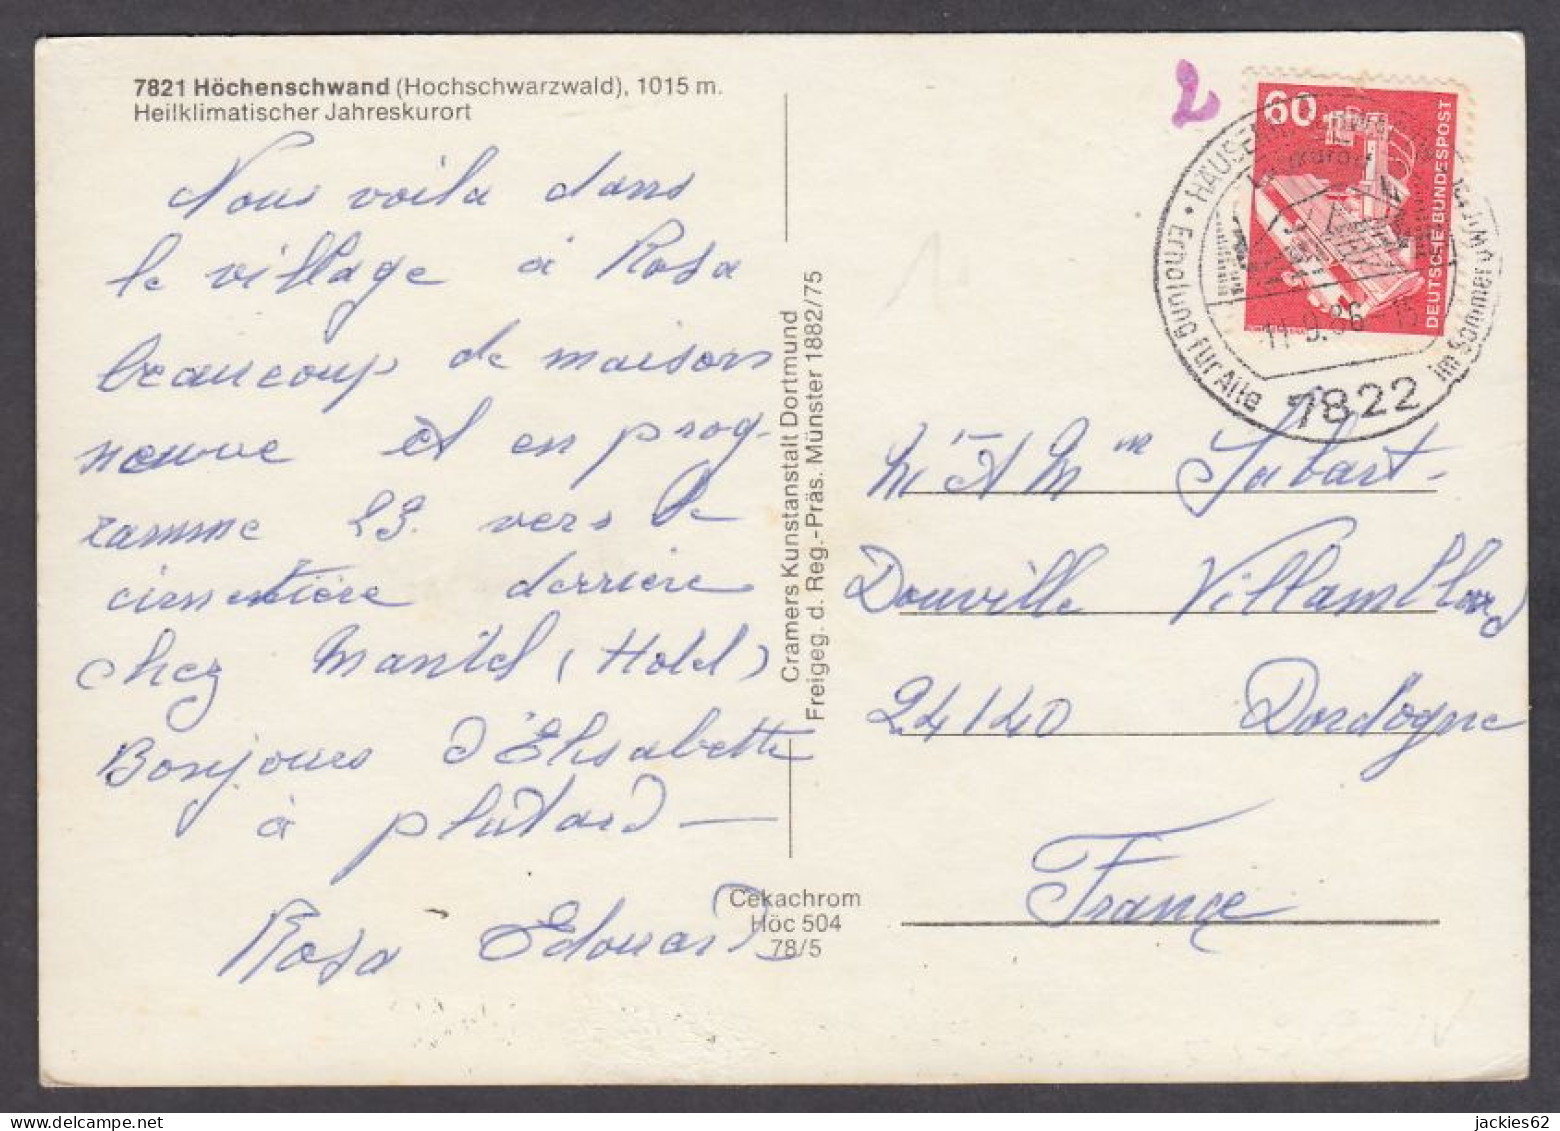 7821 Höchenschwand (Hochschwarzwald), 1015 m.
Heilklimatischer Jahreskurort
Nous voila dans
le village à Rosa
beaucoup de maisons
neuve et en prog-
ramme 23. vers le
cimentière derriere
chez Mantel (Hotel)
Bonjours d'Elisabette
à plutard —
Rosa Edouard
Cramers Kunstanstalt Dortmund
Freigeg. d. Reg.-Präs. Münster 1882/75
Cekachrom
Höc 504
78/5
2
60
DEUTSCHE BUNDESPOST
HÄUSERN
Kurort
11.9.86-15
Erholung für Alle
im Sommer u. Winter
7822
M r et M m Sabart-
Douville Villamblard
24140 Dordogne
France
jackies62